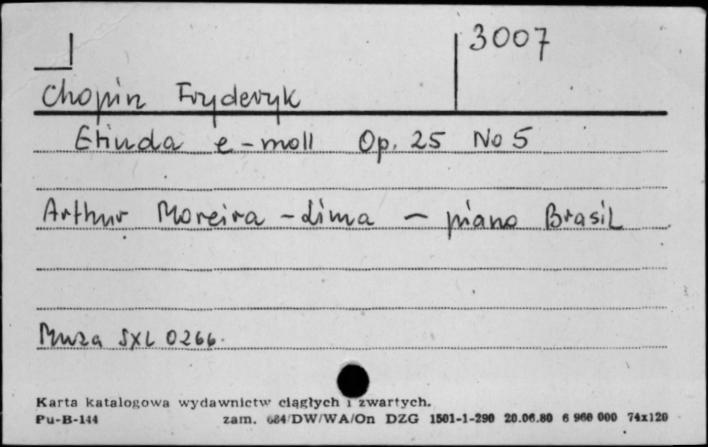 3007
Chopin Fryderyk
Etiuda e-moll Op. 25 No 5
Arthur Moreira - Lima - piano Brasil
Muza SXL 0266.
Karta katalogowa wydawnictw ciągłych i zwartych.
Pu-B-144 zam. 684/DW/WA/On DZG 1501-1-290 20.06.80 6 960 000 74x120